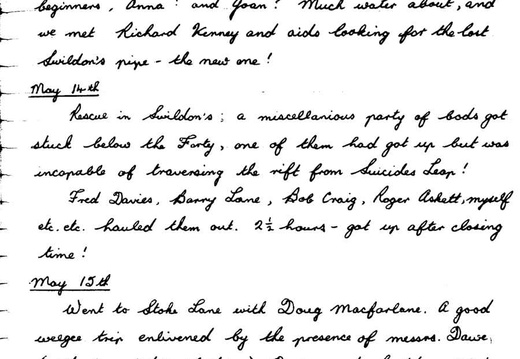 beginners, Anna? and Joan? Much water about, and
we met Richard Kenney and aids looking for the lost
Swildon's pipe - the new one!
May 14th
Rescue in Swildon's; a miscellanious party of bods got
stuck below the Forty, one of them had got up but was
incapable of traversing the rift from Suicides Leap!
Fred Davies, Barry Lane, Bob Craig, Roger Askett, myself
etc. etc. hauled them out. 2½ hours - got up after closing
time!
May 15th
Went to Stoke Lane with Doug Macfarlane. A good
weegee trip enlivened by the presence of messrs. Dawe,